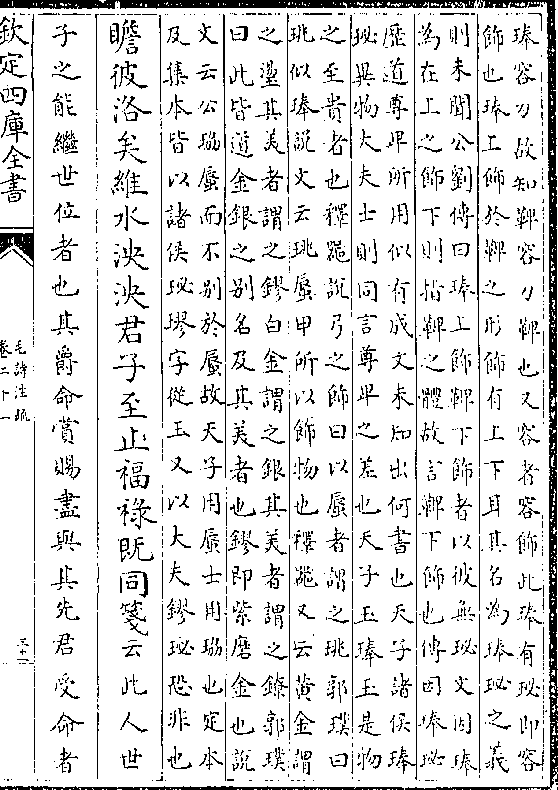 琫容刀故知鞞容刀鞞也又容者容飾此琫有珌即容
飾也琫上飾於鞞之形飾有上下耳其名為琫珌之義
則未聞公劉傳曰琫上飾鞞下飾者以彼無珌文因琫
為在上之飾下則指鞞之體故言鞞下飾也傳因琫珌
歴道尊卑所用似有成文未知出何書也天子諸侯琫
珌異物大夫士則同言尊卑之差也天子玉琫玉是物
之至貴者也釋器說弓之飾曰以蜃者謂之珧郭璞曰
珧似琫說文云珧蜃甲所以飾物也釋器又云黄金謂
之璗其美者謂之鏐白金謂之銀其美者謂之鐐郭璞
曰此皆道金銀之别名及其美者也鏐即紫磨金也說
文云公珕蜃而不别於蜃故天子用蜃士用珕也定本
及集本皆以諸侯珌璆字從玉又以大夫鏐珌恐非也
瞻彼洛矣維水泱泱君子至止福祿既同箋云此人世
子之能繼世位者也其爵命賞賜盡與其先君受命者
欽定四庫全書
毛詩注疏
卷二十一
三十一